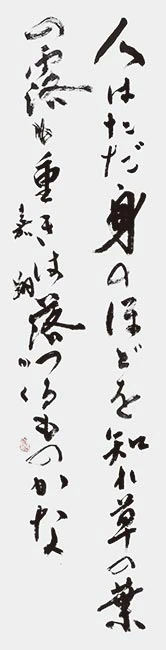 人はただ身のほどを知れ草の葉
の露も重きは落つるものかな
嘉翔